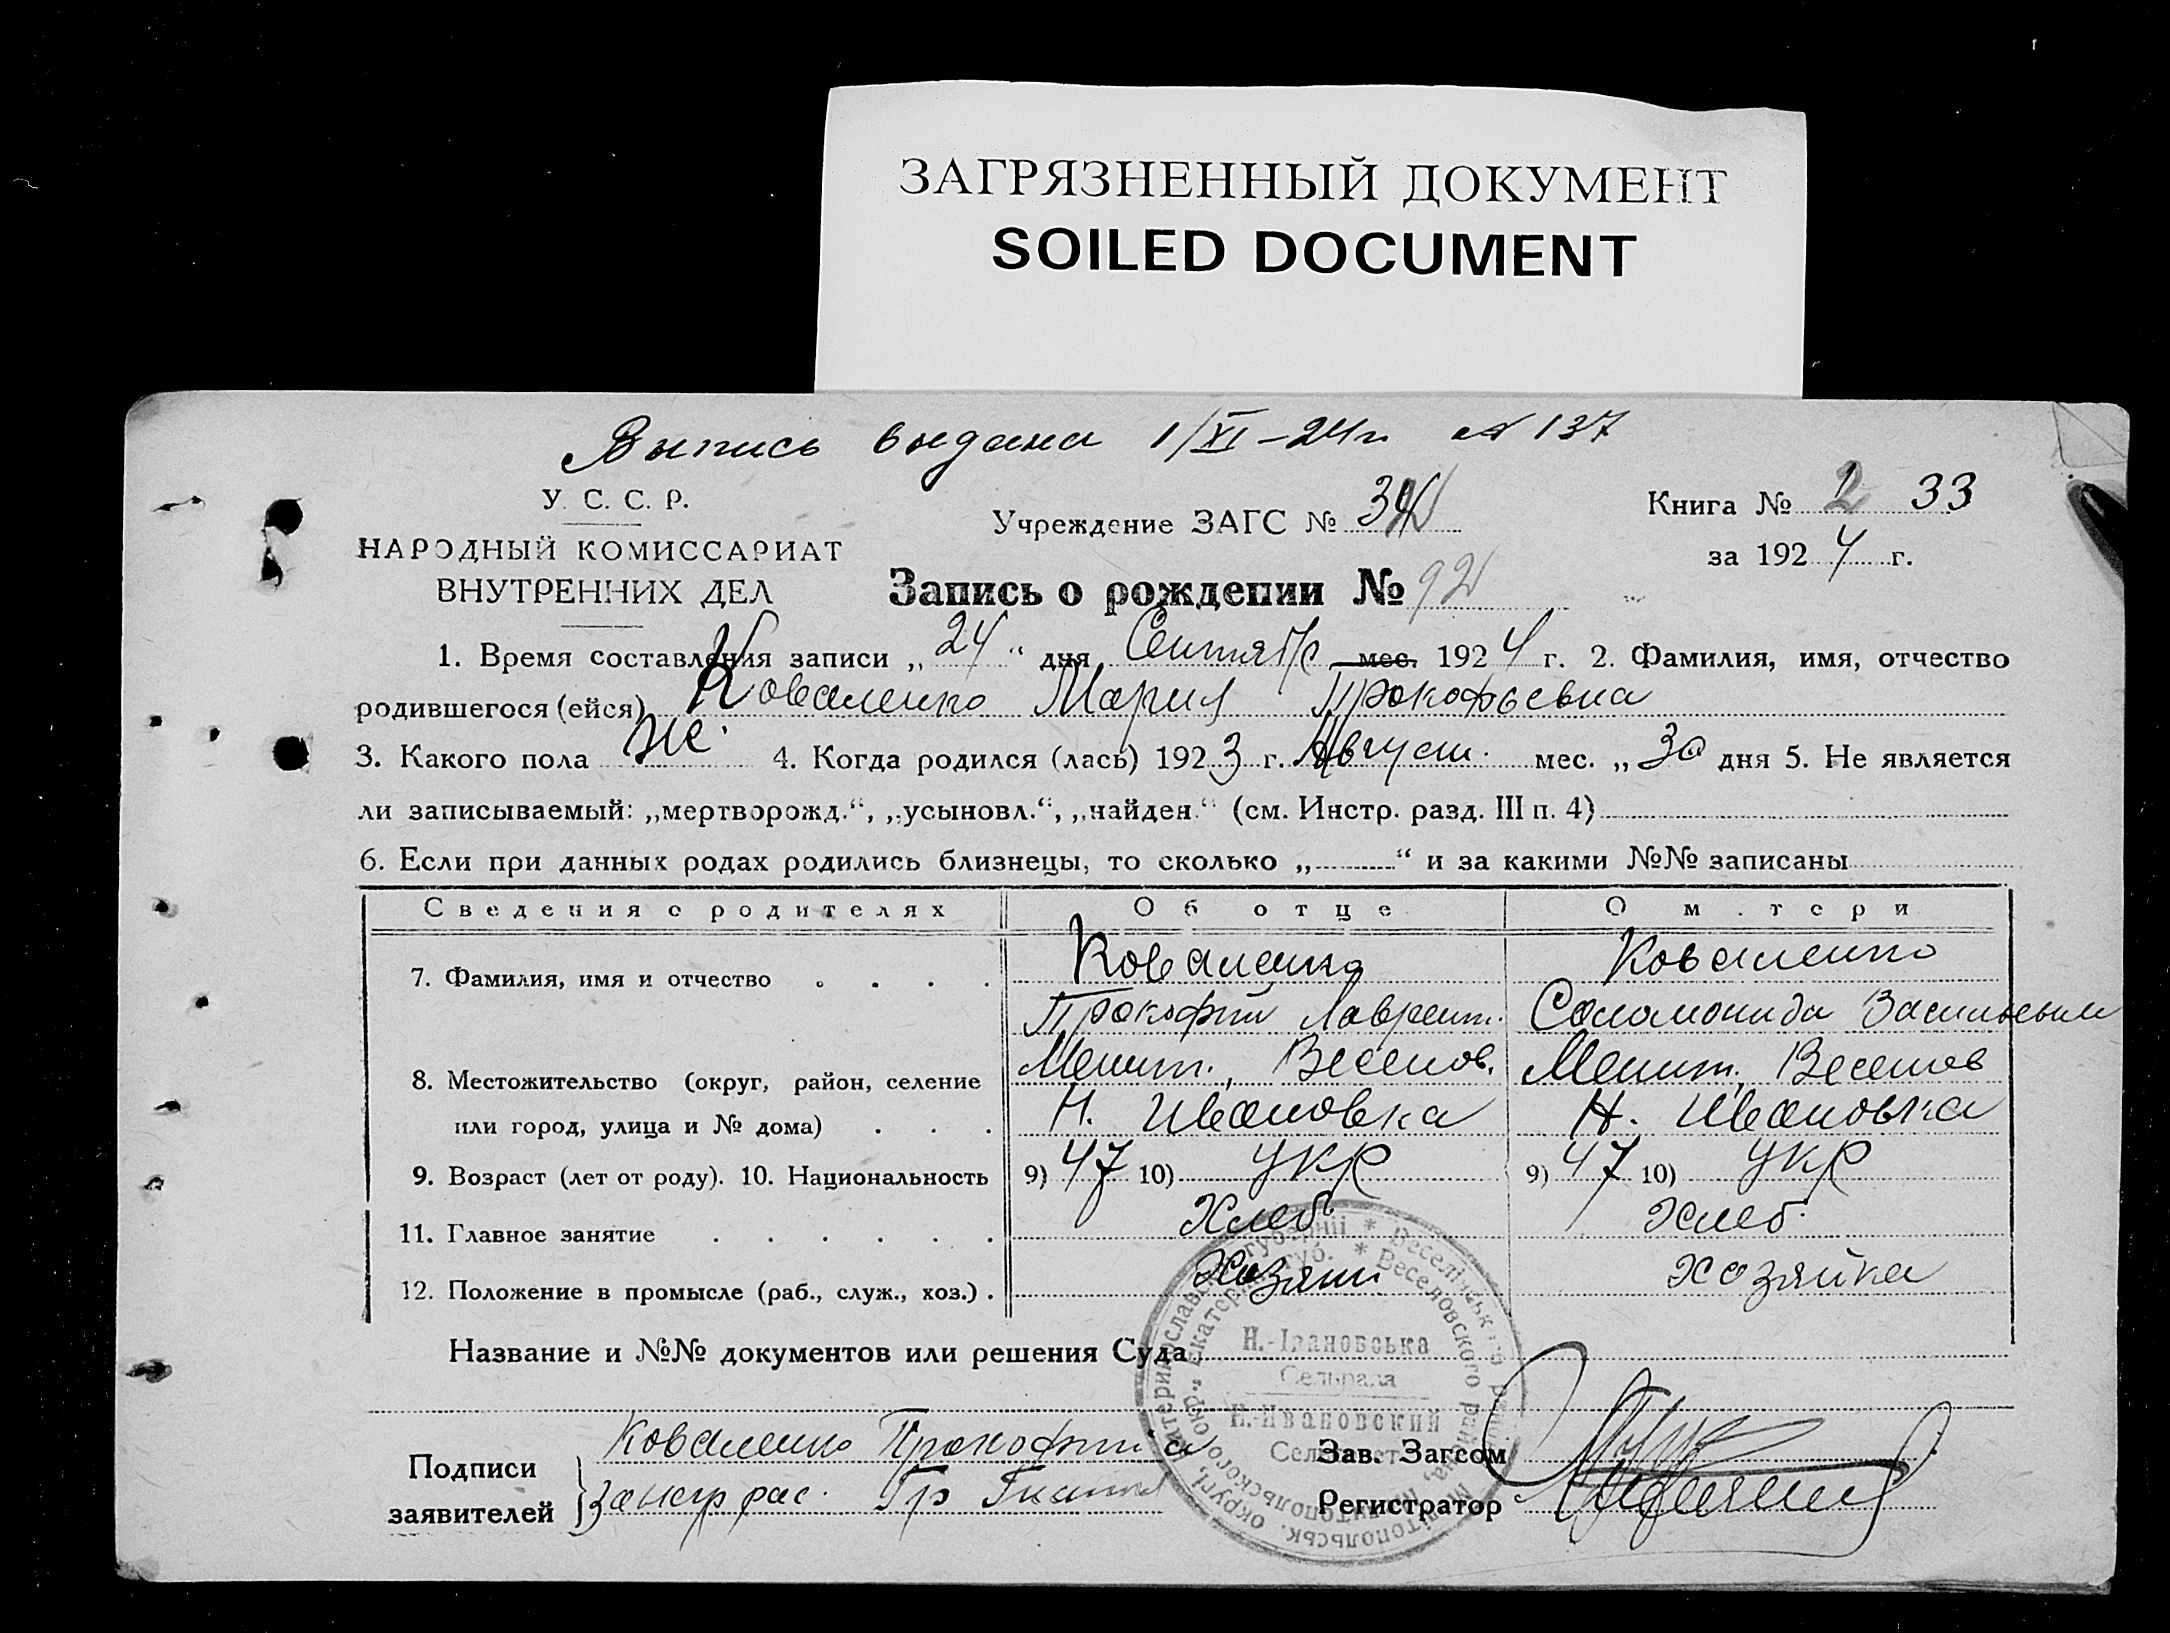 ЗАГРЯЗНЕННЫЙ ДОКУМЕНТ
SOILED DOCUMENT
Выпись выдана 1/XI-24 г. № 137
У. С. С. Р.
НАРОДНЫЙ КОМИССАРИАТ
ВНУТРЕННИХ ДЕЛ
Учреждение ЗАГС № 34
Книга № 2 33
за 1924 г.
Запись о рождении № 92
1. Время составления записи „24“ дня Сентябр мес. 1924 г. 2. Фамилия, имя, отчество
родившегося (ейся) Коваленко Мария Прокофьевна
3. Какого пола же. 4. Когда родился (лась) 1923 г. Август. мес. „30 дня 5. Не является
ли записываемый: „мертворожд.“, „усыновл.“, „найден.“ (см. Инстр. разд. III п. 4)
6. Если при данных родах родились близнецы, то сколько „ “ и за какими №№ записаны
Сведения о родителях Об отце О м.тери
7. Фамилия, имя и отчество Коваленко Коваленко
Прокофий Лаврент. Соломонида Васильевна
8. Местожительство (округ, район, селение Мелит., Веселов. Мелит., Веселов
или город, улица и № дома) Н. Ивановка Н. Ивановка
9. Возраст (лет от роду). 10. Национальность 9) 47 10) УКР 9) 47 10) УКР
11. Главное занятие Хлеб Хлеб.
12. Положение в промысле (раб., служ., хоз.) Хозяин хозяйка
Название и №№ документов или решения Суда
Катеринославської губернії * Веселівського району, Мелітопольськ. округи,
Екатеринослав. губ. * Веселовского района, Мелитопольского окр.
Н.-Івановська
Сельрада
Н.-Ивановский
Сельсовет
Подписи
заявителей
Коваленко Прокофий а
за негр рас. Гр
Зав. Загсом
Регистратор